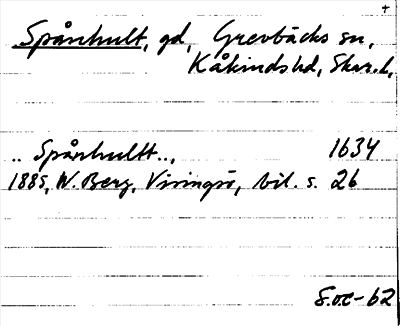 +
Spånhult, gd, Grevbäcks sn,
Kåkinds hd, Skar. l,
.. Spånhultt.., 1634
1885, W. Berg, Visingsö, bil. s. 26
S.O.C-62